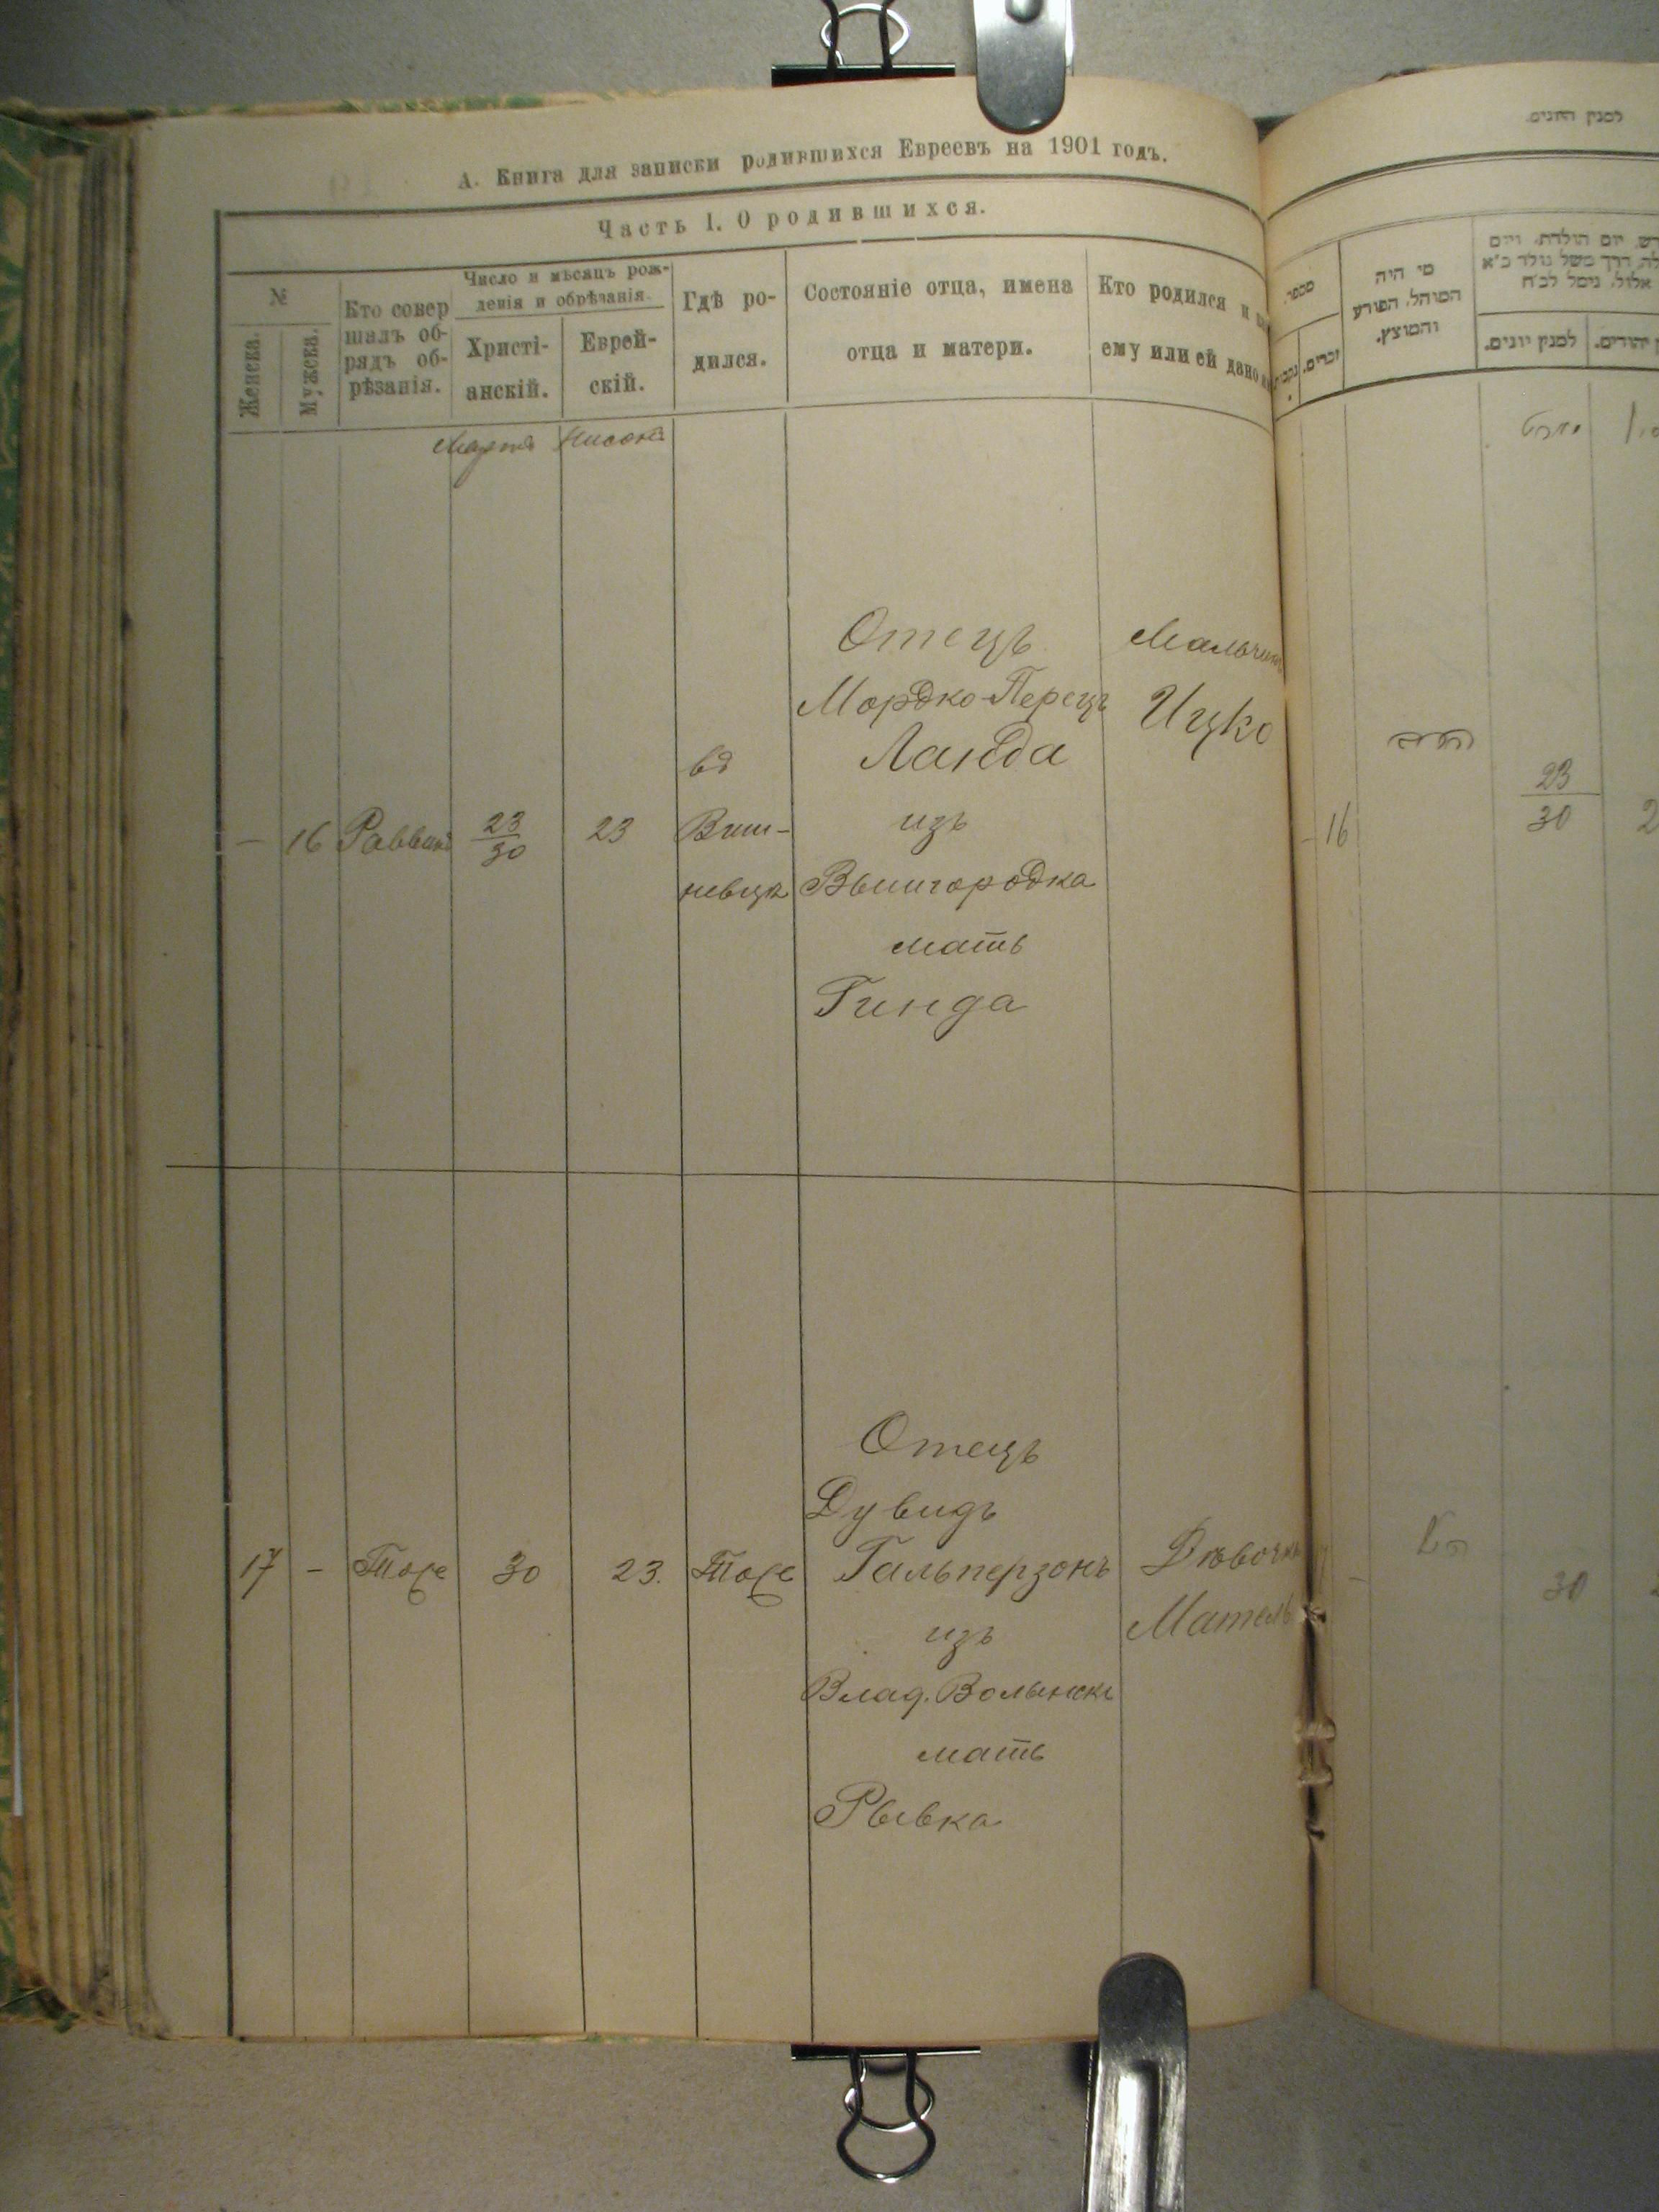 А. Книга для записки родившихся Евреевъ на 1901 годъ.
Часть I. О родившихся.
№
Женска.
Мужска.
Кто совер
шалъ об-
рядъ об-
рѣзанія.
Число и мѣсяцъ рож-
денія и обрѣзанія.
Христі-
анскій.
Еврей-
скій.
Гдѣ ро-
дился.
Состояніе отца, имена
отца и матери.
Кто родился и
ему или ей дано
Марта Нисонъ
– 16 Раввинъ 23/30 23
въ
Виш-
невцѣ
Отецъ
Мордко-Перецъ
Ланда
изъ
Вышгородка
мать
Гинда
Мальчикъ
Ицко
17 – Тоже 30 23. Тоже
Отецъ
Дувидъ
Гальперзонъ
изъ
Влад. Волынска
мать
Рывка
Дѣвочка
Матель
למנין הזונים.
מספר.
זכרים.
מי היה
המוהל, הפורע
והמוצץ.
יום הולדת, ויום
דרך משל נולד כ"א
אלול, ניסל לכ"ח
למנין יונים.
יהודים.
– 16
23/30
–
30